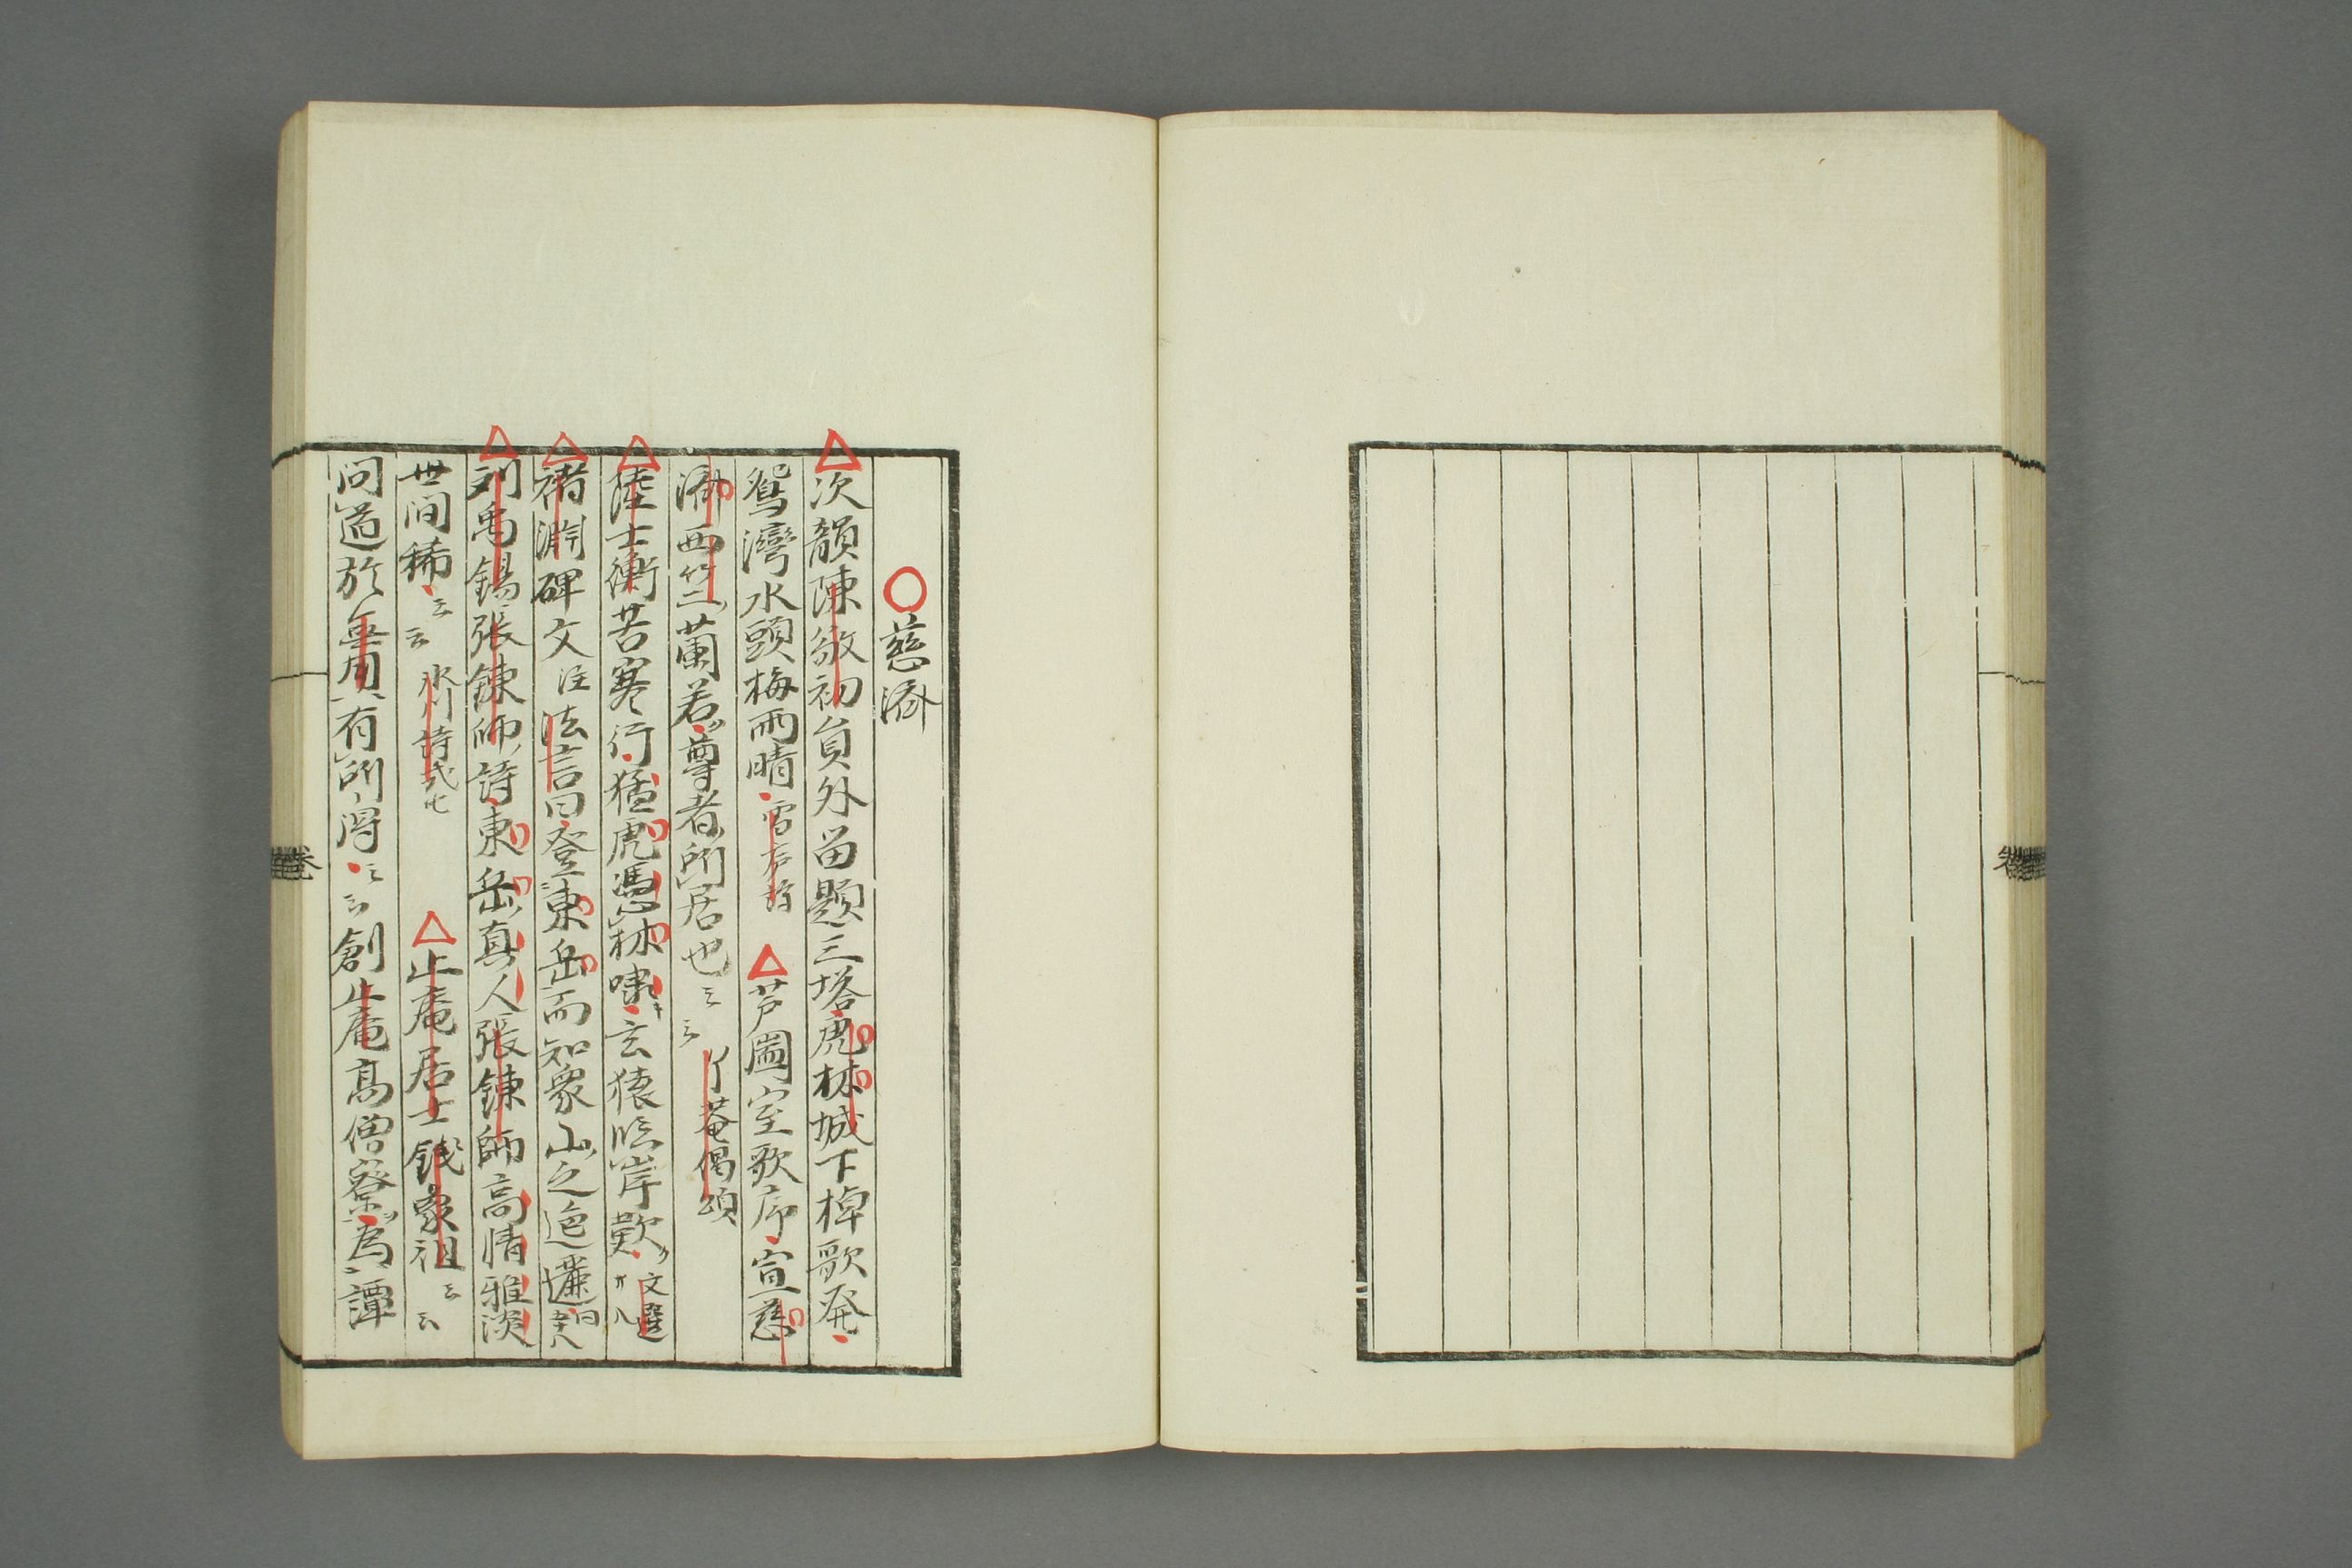 慈済
次韻陳敬初員外留題三塔虎林城下棹歌発
鴛湾水頭梅雨晴雪庐詩 芦圌室歌序宣慈
済西竺蘭若尊者所居也云云 了菴偈頌
陸士衡苦寒行猛虎憑林嘯玄猿臨岸歎文選廿八
禇淵碑文注法言曰登東岳而知衆山之迤邐同五十八
刘禹錫張錬師詩東岳真人張錬師高情雅淡
世间稀云云 氷川詩式七 止庵居士銭象祖云云
问道於無用有所得云云創止庵高僧寮為譚